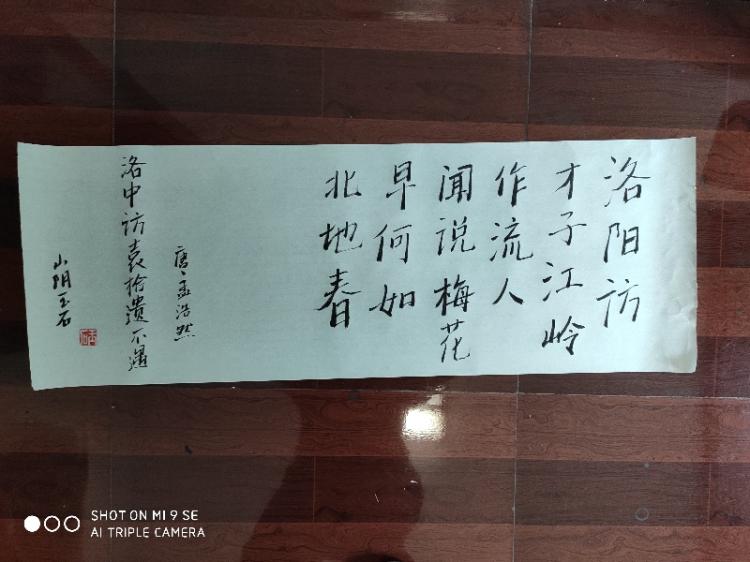 洛阳访
才子江岭
作流人
闻说梅花
早何如
北地春
唐:孟浩然
洛中访袁拾遗不遇
山阴玉石
SHOT ON MI 9 SE
AI TRIPLE CAMERA